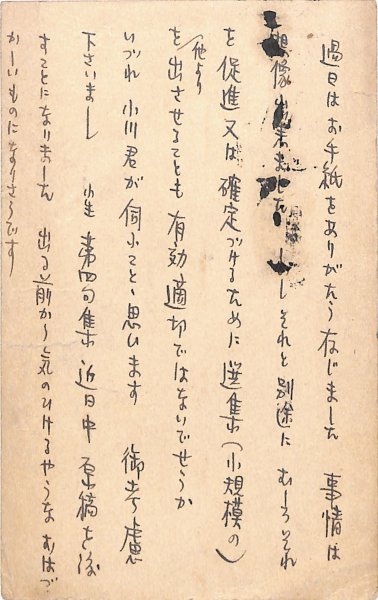 過日はお手紙をありがたう存じました 事情は
想像出来ました しかしそれと別途に むしろそれ
を促進又は確定づけるために選集(小規模の)
を(他より)出させることも有効適切ではないでせうか
いづれ小川君が伺ふこと丶思います 御考慮
下さいまし 小生 第四句集 近日中 原稿を渡
すことになりました 出る前から気のひけるやうな むはづ
かしいものになりさうです